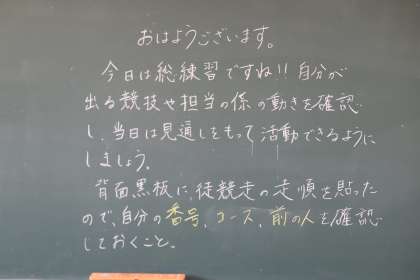 おはようございます。
今日は総練習ですね!!自分が
出る競技や担当の係の動きを確認
し、当日は見通しをもって活動できるように
しましょう。
背面黒板に、徒競走の走順を貼った
ので、自分の番号、コース、前の人を確認
しておくこと。